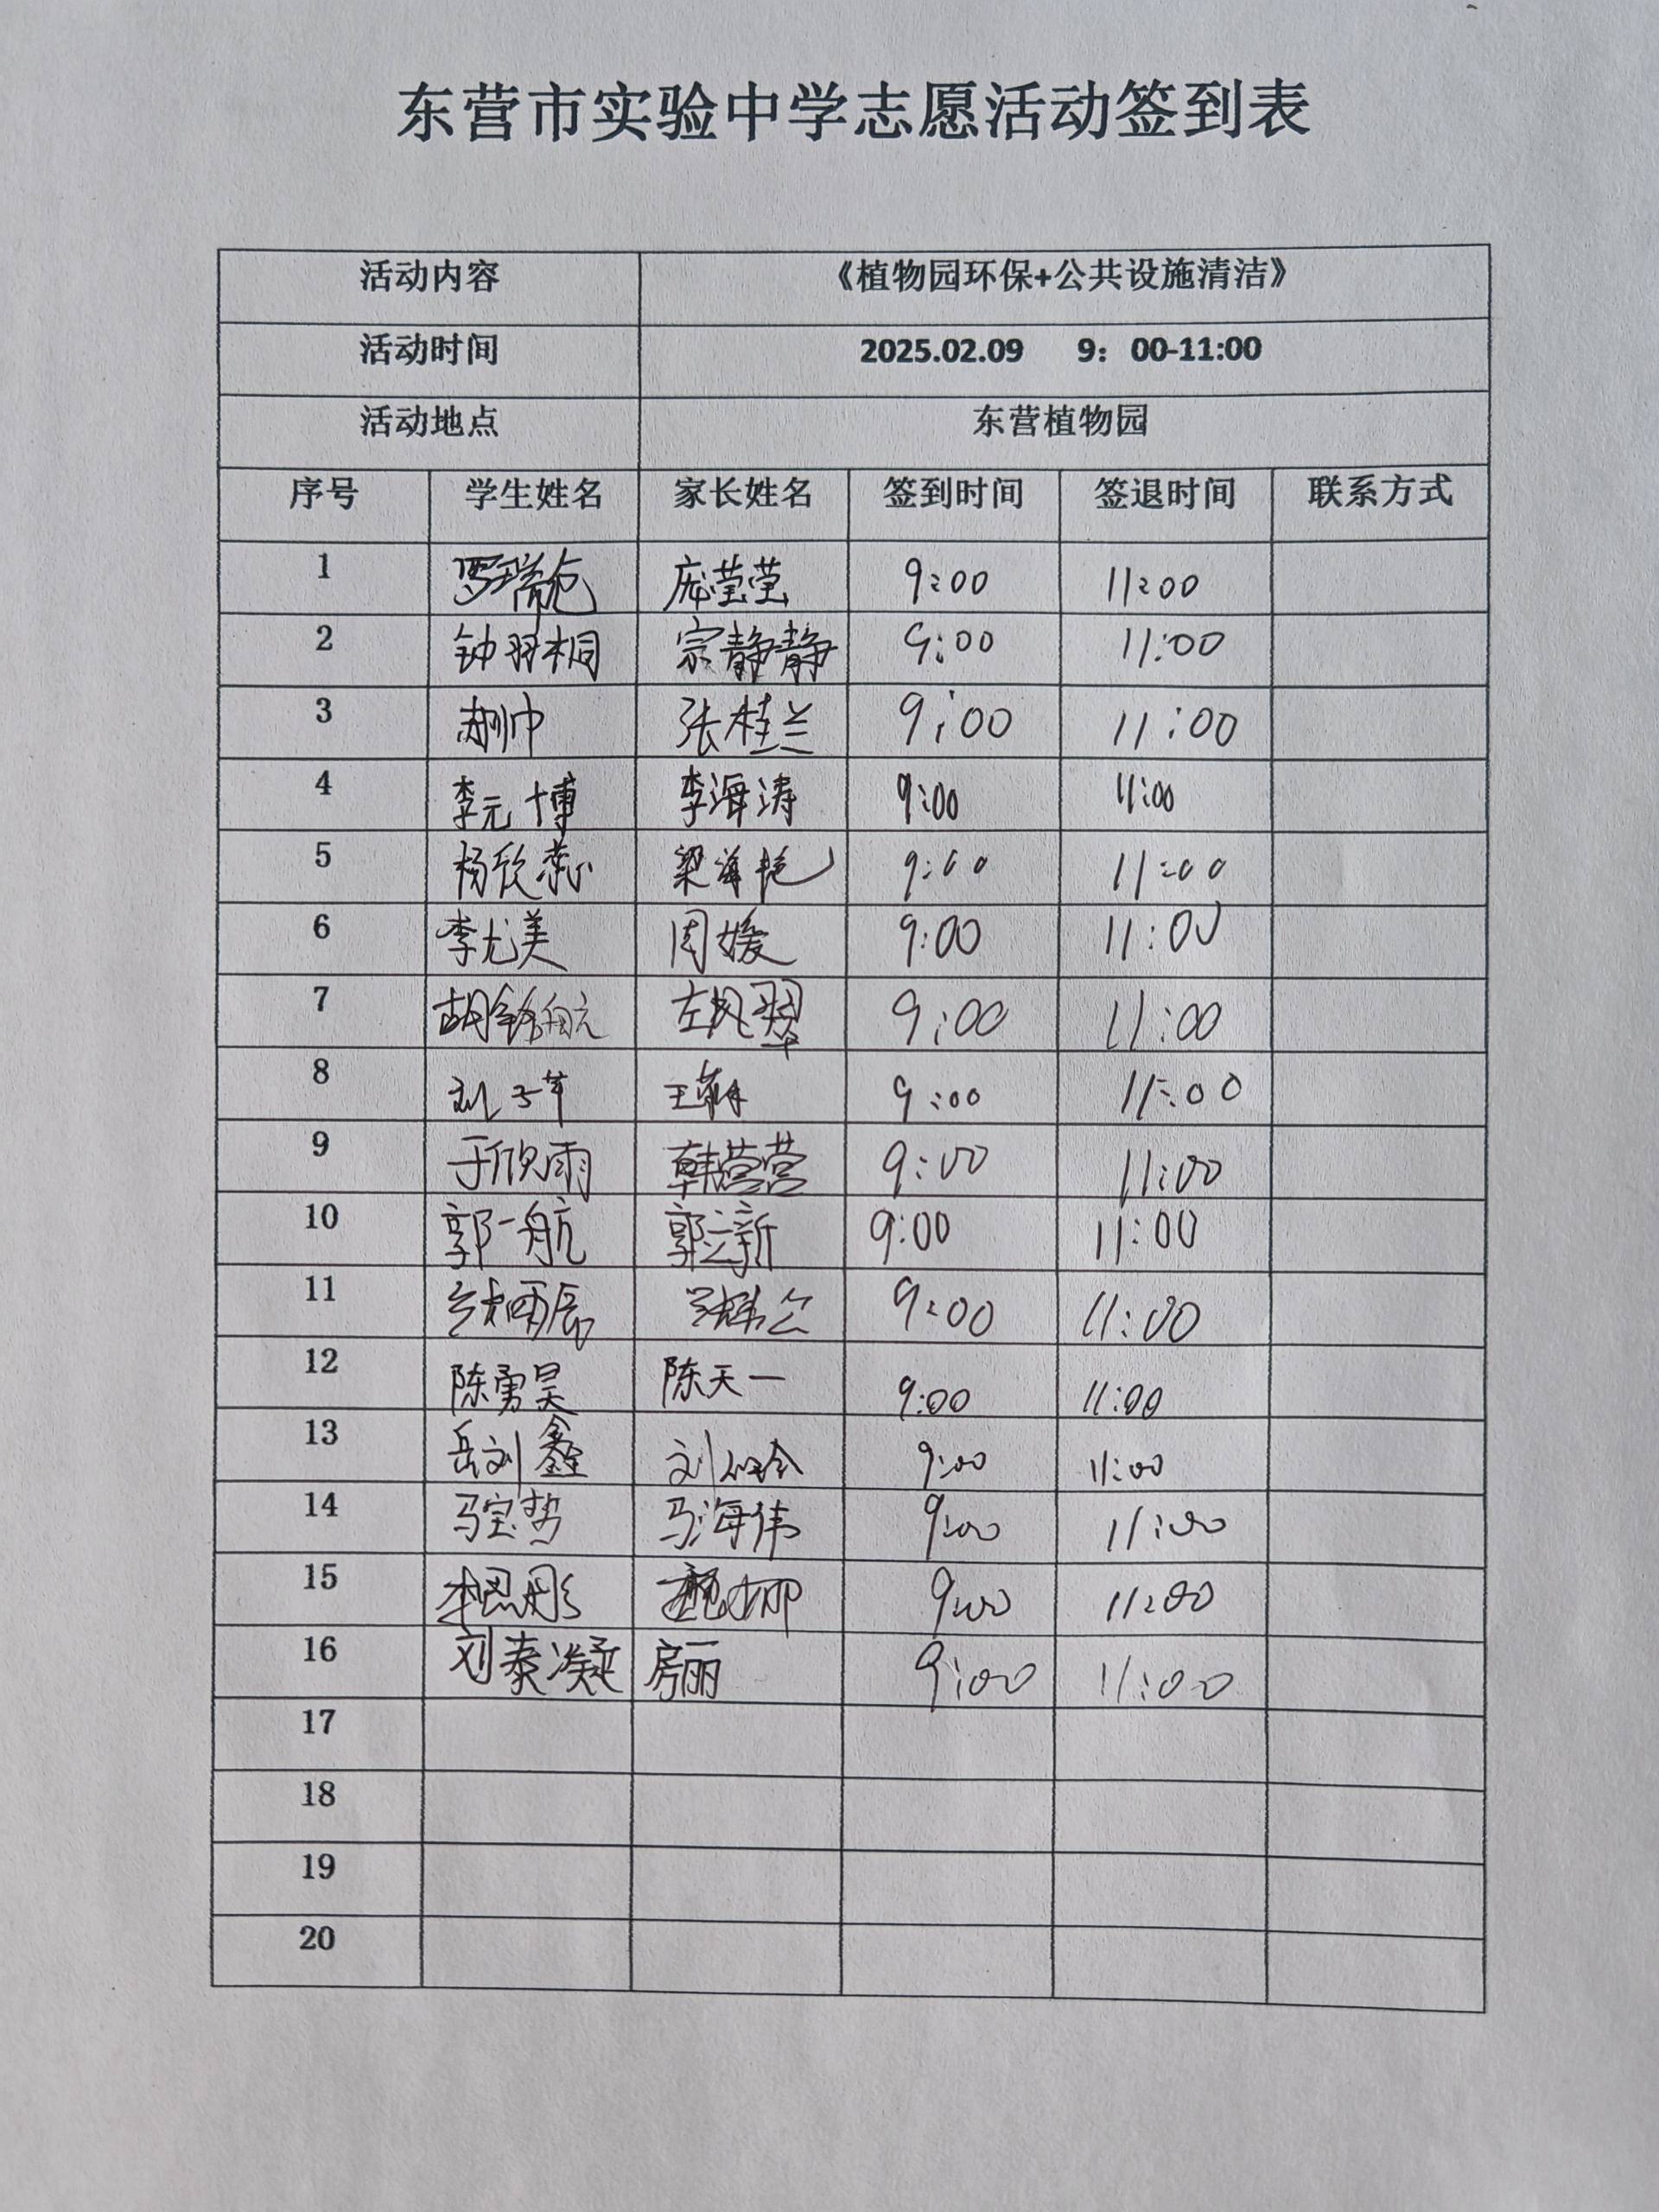 东营市实验中学志愿活动签到表
活动内容 《植物园环保+公共设施清洁》
活动时间 2025.02.09 9：00-11:00
活动地点 东营植物园
序号 学生姓名 家长姓名 签到时间 签退时间 联系方式
1 罗瑞 庞莹莹 9:00 11:00
2 钟羽桐 宗静静 9:00 11:00
3 张桂兰 9:00 11:00
4 李元博 李海涛 9:00 11:00
5 杨欣蕊 梁海艳 9:00 11:00
6 李尤美 周媛 9:00 11:00
7 胡铭航 左凤翠 9:00 11:00
8 刘子芊 王 9:00 11:00
9 于欣雨 韩营营 9:00 11:00
10 郭一航 郭立新 9:00 11:00
11 雨辰 9:00 11:00
12 陈勇昊 陈天一 9:00 11:00
13 岳刘鑫 刘 9:00 11:00
14 马宝势 马海伟 9:00 11:00
15 李思彤 魏娜 9:00 11:00
16 刘泰凝 房丽 9:00 11:00
17
18
19
20